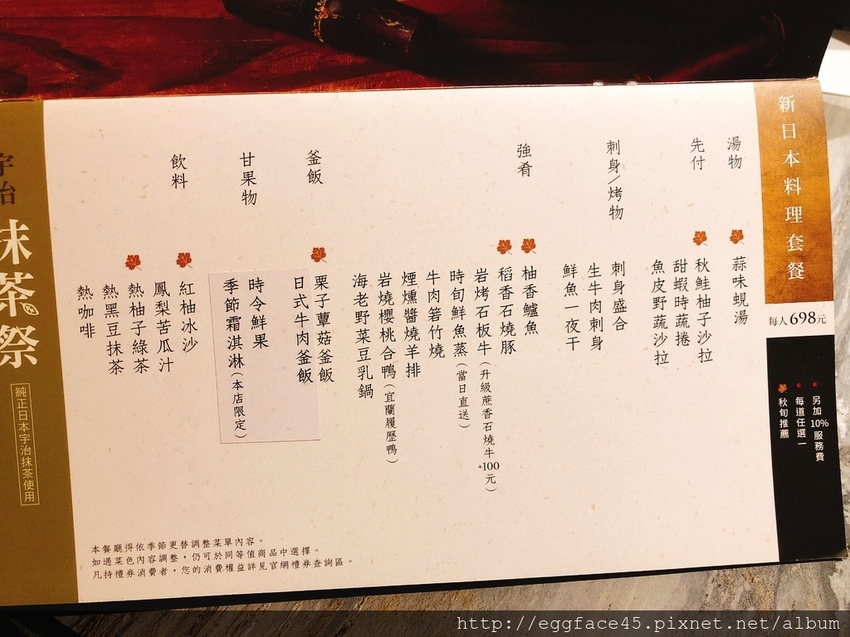 新日本料理套餐
每人698元
另加10%服務費
每道任選一
秋旬推薦
湯物
蒜味蜆湯
先付
秋鮭柚子沙拉
甜蝦時蔬捲
魚皮野蔬沙拉
刺身/烤物
刺身盛合
生牛肉刺身
鮮魚一夜干
強肴
柚香鱸魚
稻香石燒豚
岩烤石板牛(升級蔗香石燒牛+100元)
時旬鮮魚蒸(當日直送)
牛肉箬竹燒
煙燻醬燒羊排
岩燒櫻桃合鴨(宜蘭履歷鴨)
海老野菜豆乳鍋
釜飯
栗子蕈菇釜飯
日式牛肉釜飯
甘果物
時令鮮果
季節霜淇淋(本店限定)
飲料
紅柚冰沙
鳳梨苦瓜汁
熱柚子綠茶
熱黑豆抹茶
熱咖啡
本餐廳得依季節更替調整菜單內容。
如遇菜色內容調整,仍可於同等值商品中選擇。
凡持禮券消費者,您的消費權益詳見官網禮券查詢區。
宇治
抹茶祭
純正日本宇治抹茶使用
http://eggface45.pixnet.net/album